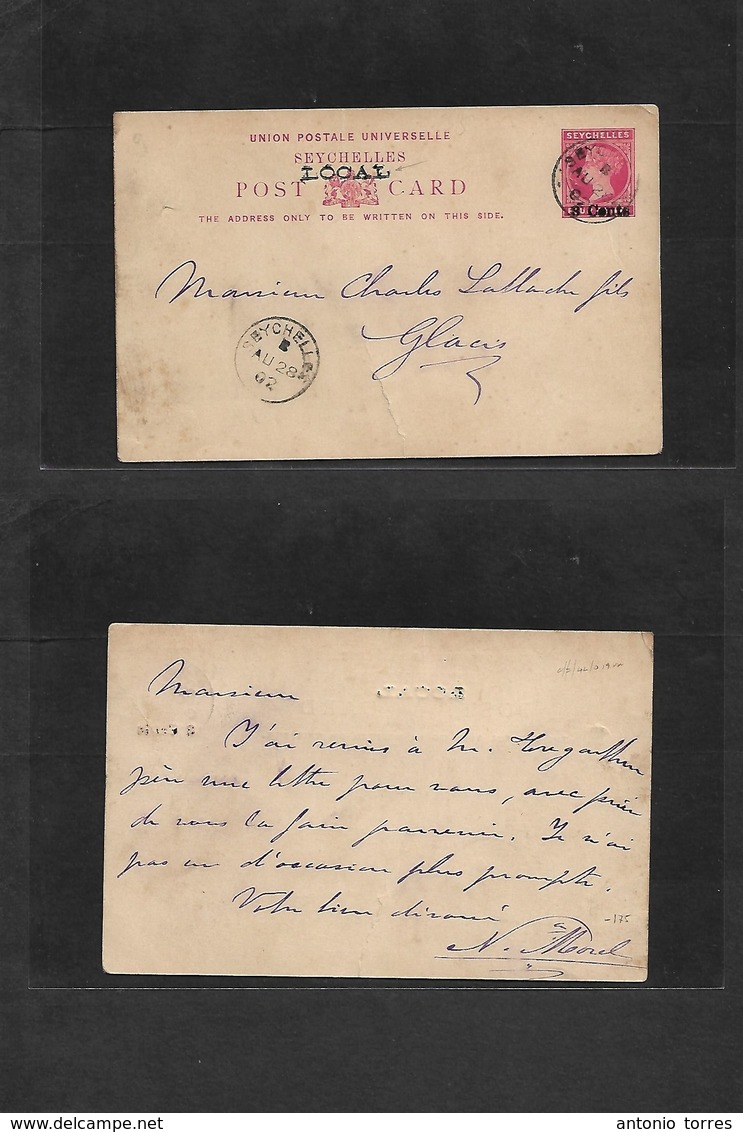 UNION POSTALE UNIVERSELLE
SEYCHELLES
LOCAL
POST CARD
THE ADDRESS ONLY TO BE WRITTEN ON THIS SIDE.
SEYCHELLES
3 Cents
B
AU 2
02
Monsieur Charles Lablache fils
Glacis
SEYCHELLES
B
AU 28
02
Monsieur
J'ai remis à M.
père une lettre pour vous, avec prière
de vous la faire parvenir. Je n'ai
pas eu d'occasion plus prompte.
Votre bien dévoué
N. Morel
-175
antonio torres